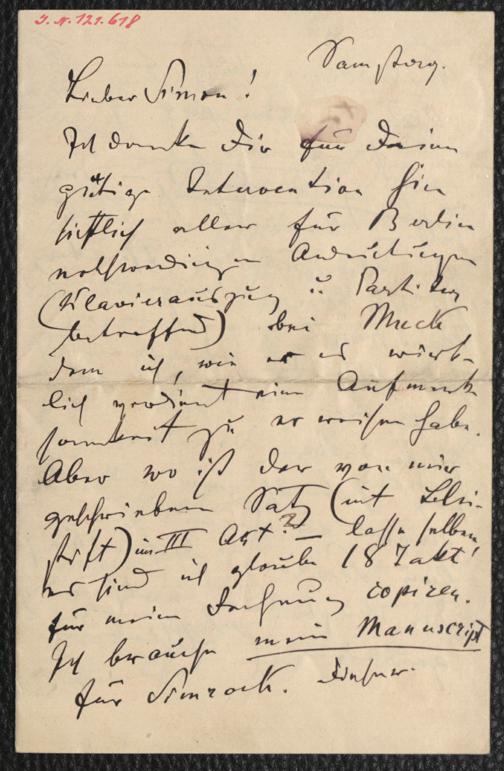 I. N. 121.618
Samstag.
Lieber Simon!
Ich danke Dir für Deine
gütige Intervention hin
sichtlich aller für Berlin
nothwendigen Andeutungen
(Klavierauszug u Partitur
betreffend) bei Muck
dem ich, wie er es wirk-
lich verdient eine Aufmerk
samkeit zu erweisen habe.
Aber wo ist der von mir
geschriebene Satz (mit Blei-
stift) im III Akt? – lasse selben,
es sind ich glaube 18 Takt!
für meine Rechnung copiren.
Ich brauche mein Manuscript
für Simrock. Dein